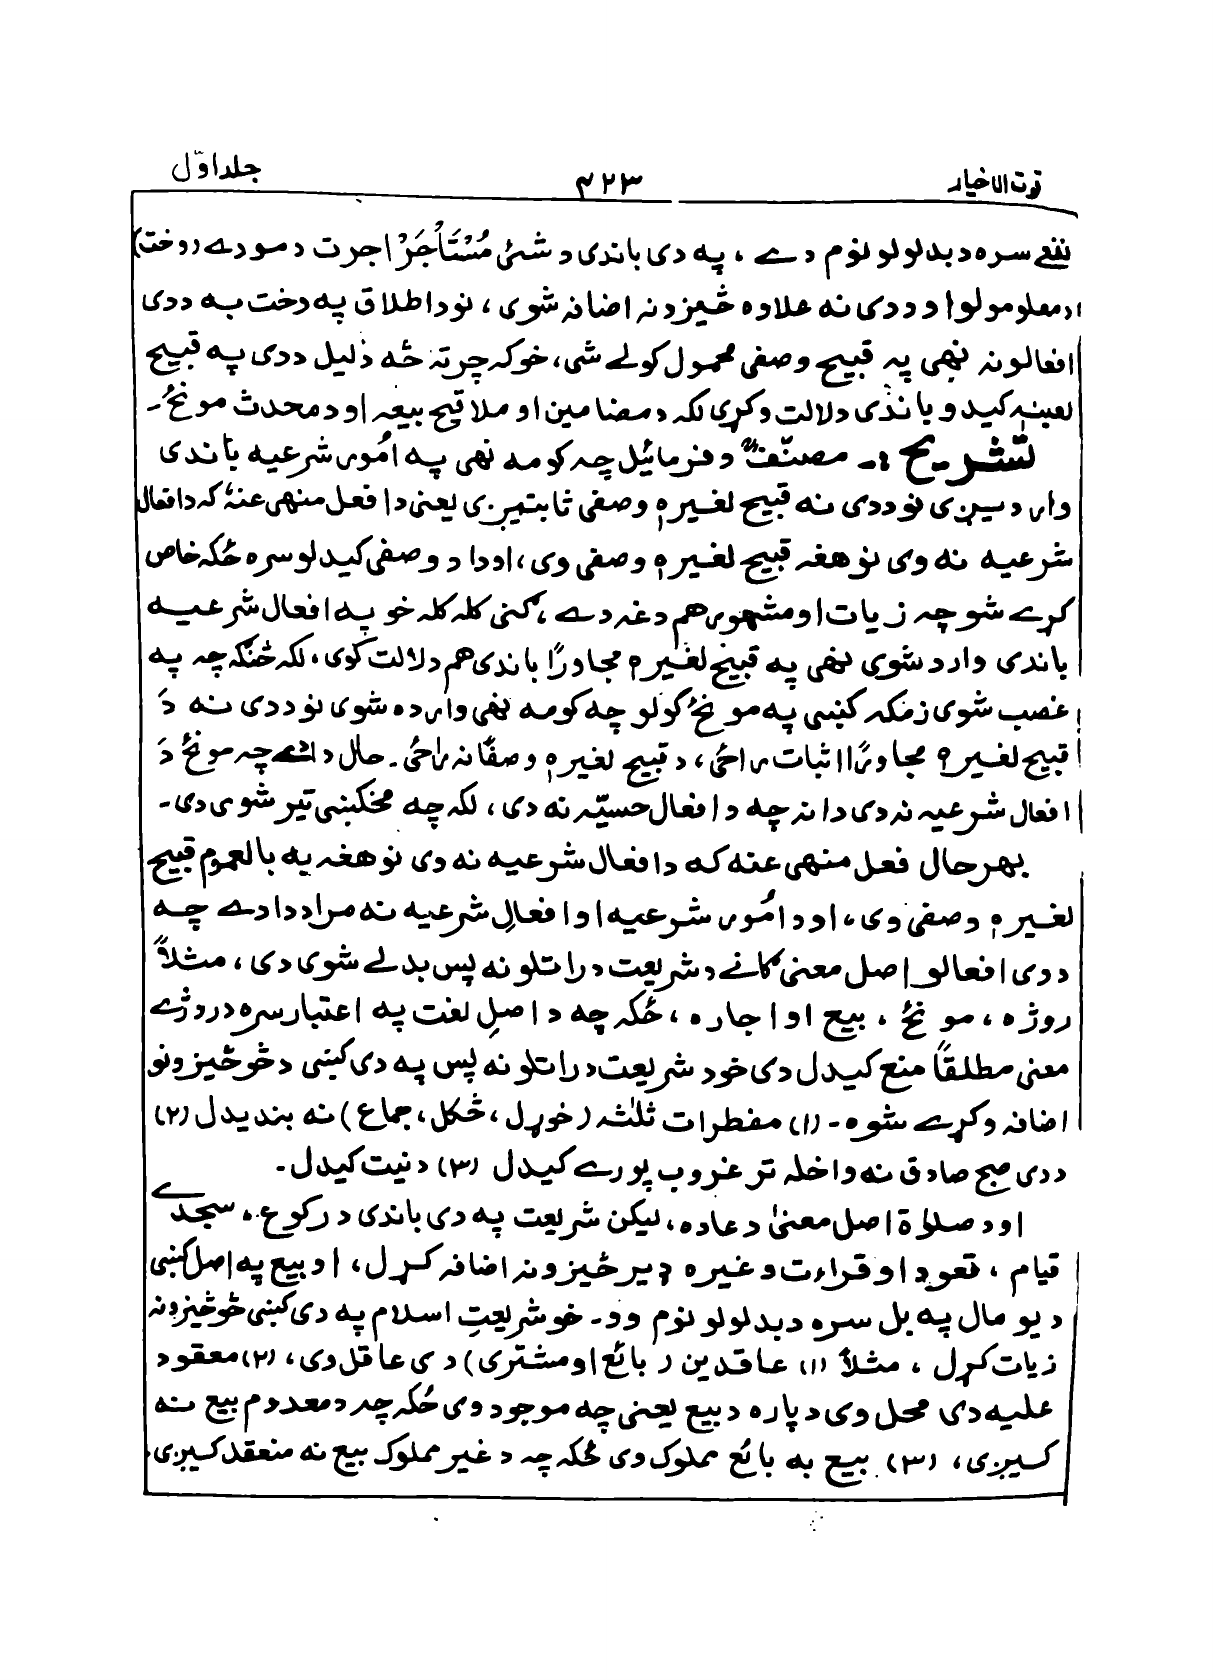 قوت الاخیار ۴۲۳ جلد اوّل
نفعے سره د بدلولو نوم دے ، په دی باندی د شئ مُسْتَأجَرْ اجرت د مودے (وخت)
او معلومولو او ددی نه علاوه څیزونه اضافه شوی ، نو د اطلاق په وخت به ددی
افعالونه نهی په قبیح وصفی محمول کولے شی، خو که چرته څه دلیل ددی په قبیح
لعینه کیدو باندی دلالت وکړی لکه د مضامین او ملاقیح بیعه او د محدث مونځ۔
تشریح :۔ مصنفؒ وفرمائیل چه کومه نهی په اُمورِ شرعیه باندی
وارد سیږی نو ددی نه قبیح لغیرهٖ وصفی ثابتیږی یعنی دا فعل منهی عنهٗ که د افعال
شرعیه نه وی نو هغه قبیح لغیرهٖ وصفی وی، او دا د وصفی کیدلو سره ځکه خاص
کړے شو چه زیات او مشهور هم دغه دے ، کنی کله کله خو په افعال شرعیه
باندی وارد شوی نهی په قبیح لغیرهٖ مجاورًا باندی هم دلالت کوی، لکه څنګه چه په
غصب شوی زمکه کښی په مونځ کولو چه کومه نهی وارده شوی نو ددی نه دَ
قبیح لغیرهٖ مجاورًا اثبات راځی ، د قبیح لغیرهٖ وصفًا نه راځی۔ حال دا دے چه مونځ دَ
افعال شرعیه نه دی دا نه چه د افعال حسیّه نه دی ، لکه چه مخکښی تیر شوی دی۔
بهرحال فعل منهی عنه که د افعال شرعیه نه وی نو هغه به بالعموم قبیح
لغیرهٖ وصفی وی، او د اُمورِ شرعیه او افعالِ شرعیه نه مراد دا دے چه
ددی افعالو اصل معنی ګانے د شریعت د راتلو نه پس بدلے شوی دی ، مثلاً
روژه ، مونځ ، بیع او اجاره ، ځکه چه د اصلِ لغت په اعتبار سره د روژے
معنی مطلقًا منع کیدل دی خو د شریعت د راتلو نه پس په دی کښی د څو څیزونو
اضافه وکړے شوه۔ (۱) مفطرات ثلٰثه (خوړل ، څکل، جماع) نه بندیدل (۲)
ددی صبح صادق نه واخله تر غروب پورے کیدل (۳) د نیت کیدل۔
او د صلوٰة اصل معنیٰ دعا ده، لیکن شریعت په دی باندی د رکوع، سجدے
قیام ، قعود او قراءت وغیره ډیر څیزونه اضافه کړل، او بیع په اصل کښی
د یو مال په بل سره د بدلولو نوم وو۔ خو شریعتِ اسلام په دی کښی څو څیزونه
زیات کړل ، مثلاً (۱) عاقدین (بائع او مشتری) دی عاقل وی، (۲) معقود
علیه دی محل وی د پاره د بیع یعنی چه موجود وی ځکه چه د معدوم بیع نه
کیږی، (۳) بیع به بائع مملوک وی ځکه چه د غیر مملوک بیع نه منعقد کیږی،